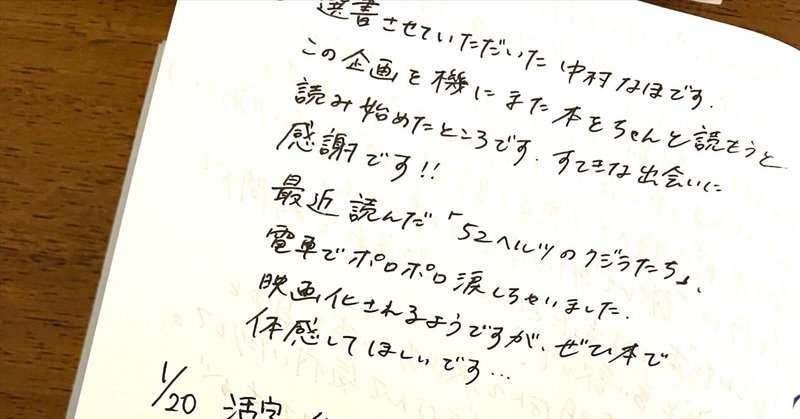 選書させていただいた中村なほです.
この企画を機にまた本をちゃんと読もうと
読み始めたところです. すてきな出会いに
感謝です!!
最近読んだ「52ヘルツのクジラたち」、
電車でポロポロ涙しちゃいました.
映画化されるようですが、ぜひ本で
体感してほしいです…
1/20 活字